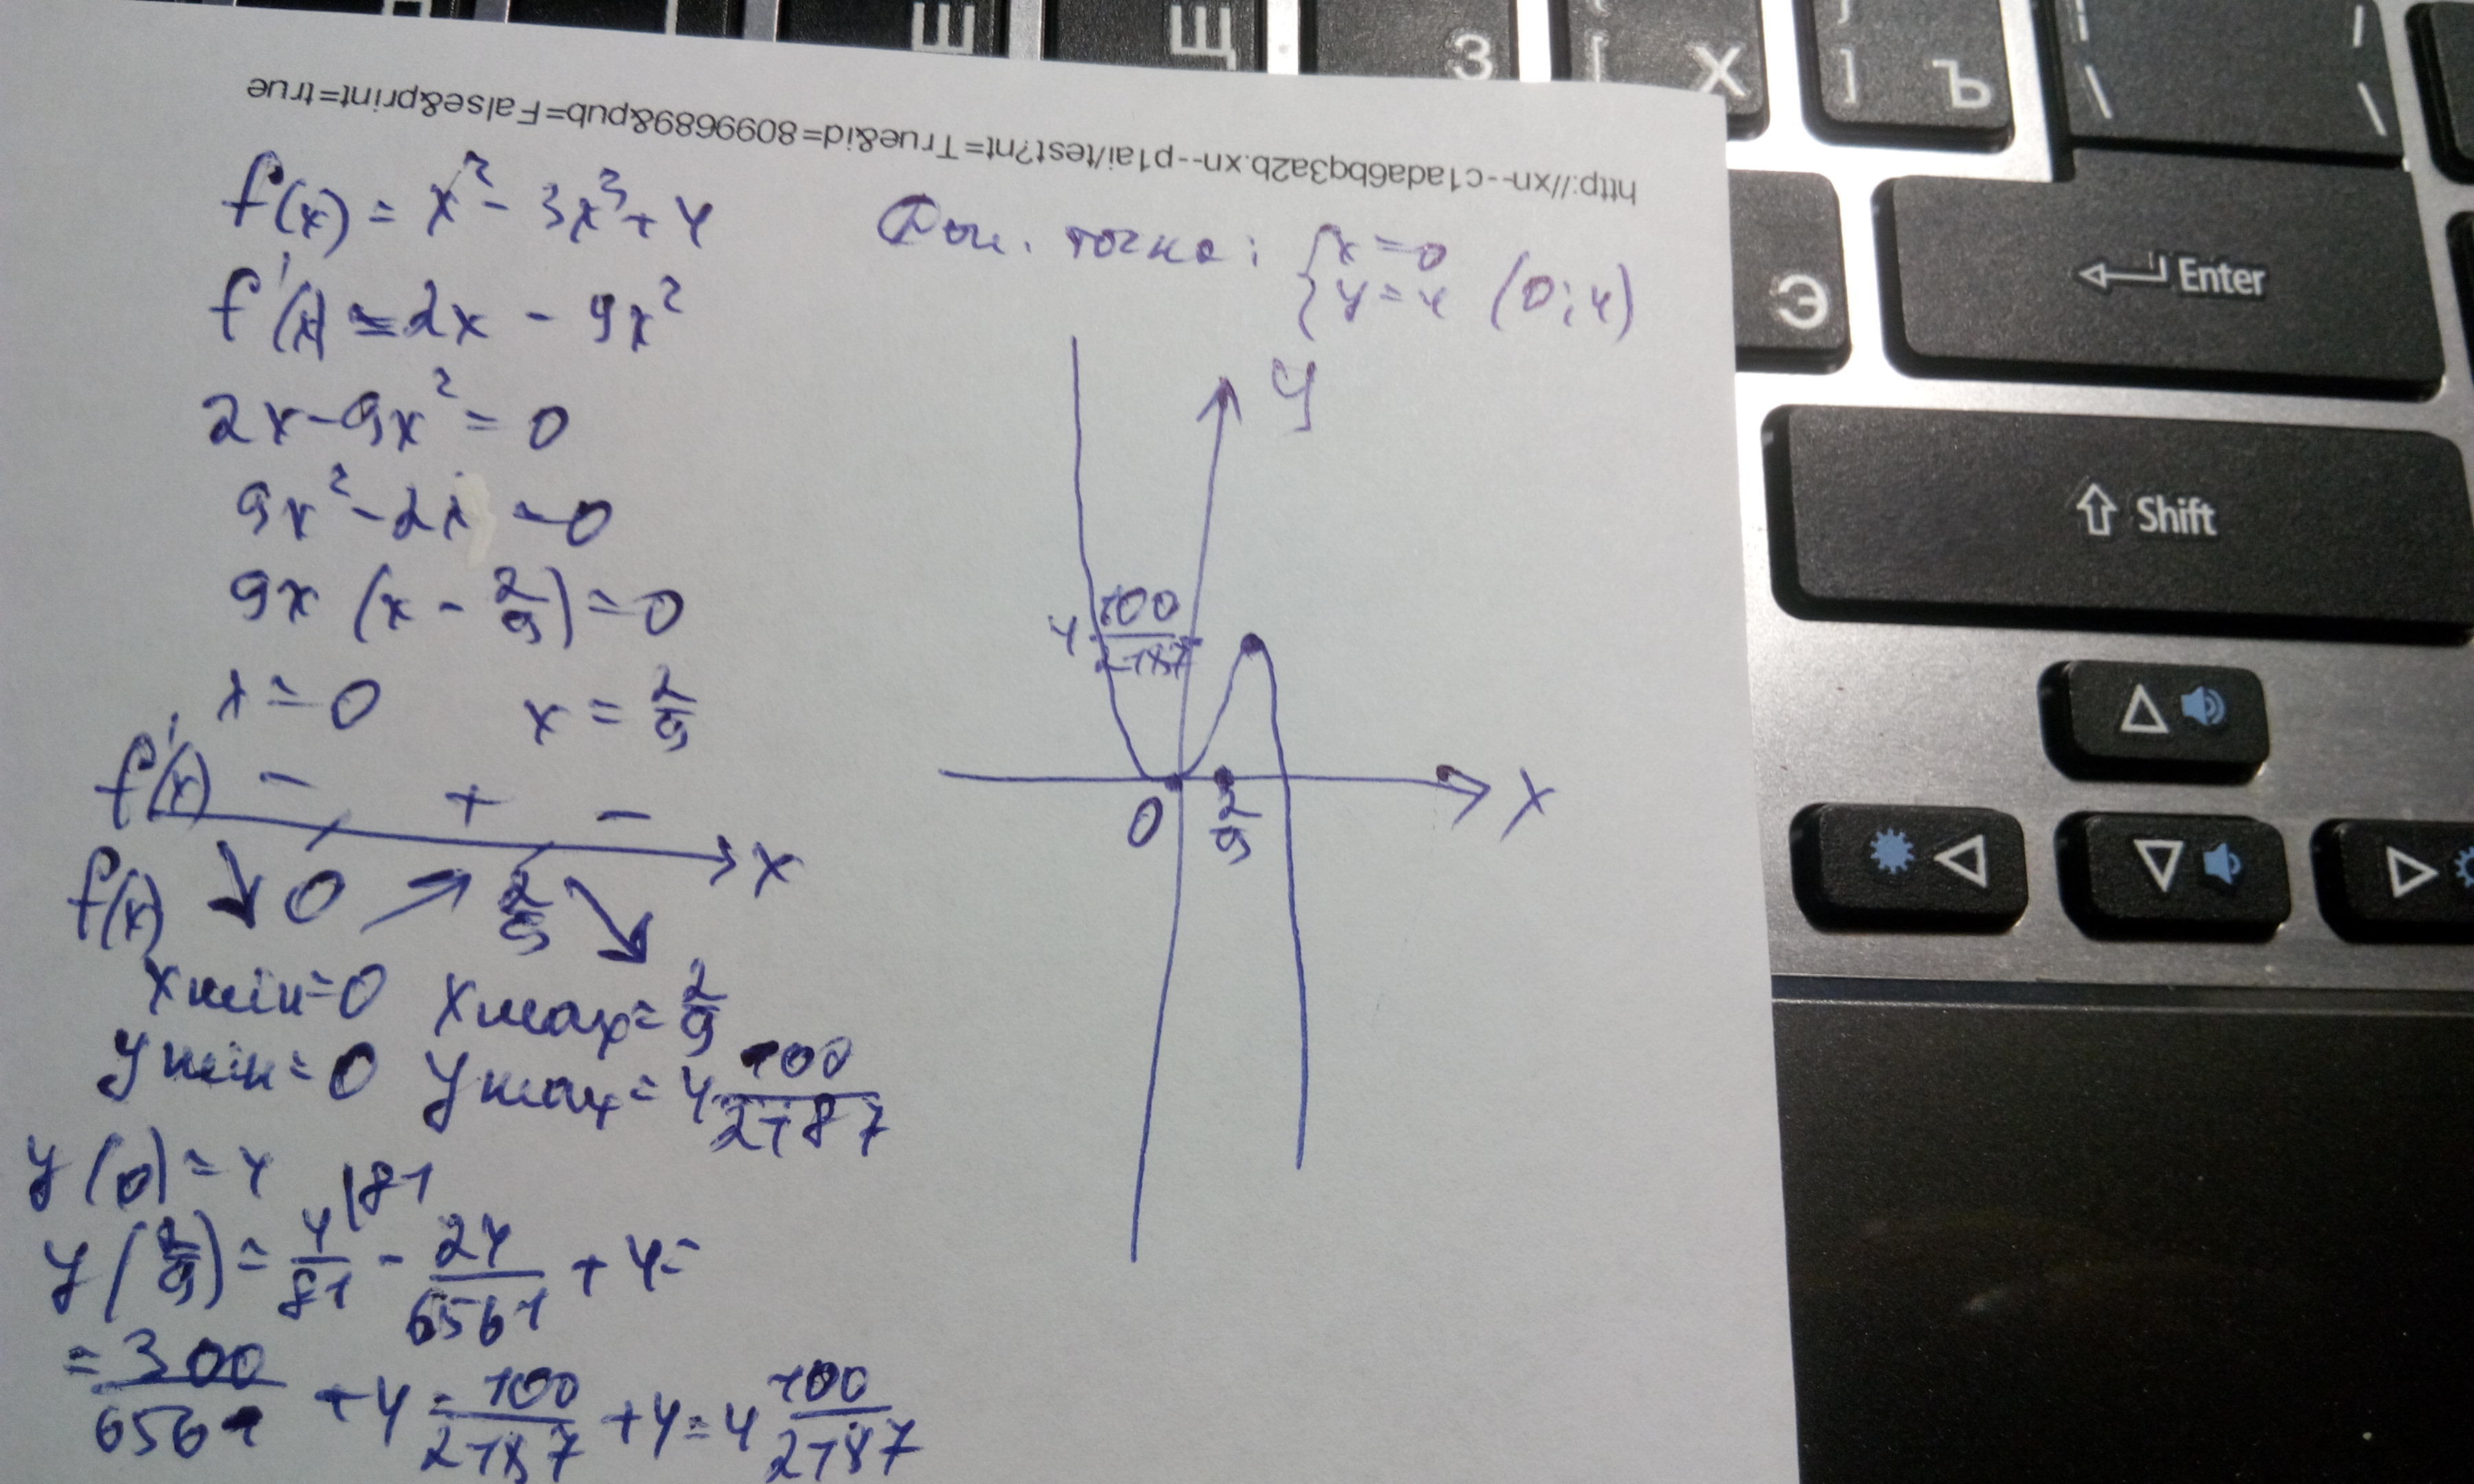 Ш Щ З [ Х ] Ъ \
http://xn--c1ada6bq3a2b.xn--p1ai/test?nt=True&id=8099689&pub=False&print=true
f(x) = x² - 3x³ + 4
f'(x) = 2x - 9x²
2x - 9x² = 0
9x² - 2x = 0
9x (x - 2/9) = 0
x = 0 x = 2/9
f'(x) - + -
x
f(x) 0 2/9
xmin = 0 xmax = 2/9
ymin = 0 ymax = 4 100/2187
y(0) = 4
y(2/9) = 4/81 |81 - 24/6561 + 4 =
= 300/6561 + 4 = 100/2187 + 4 = 4 100/2187
точка: { x = 0
y = 4 (0; 4)
y
4 100/2187
0 2/9 x
Э Enter
Shift